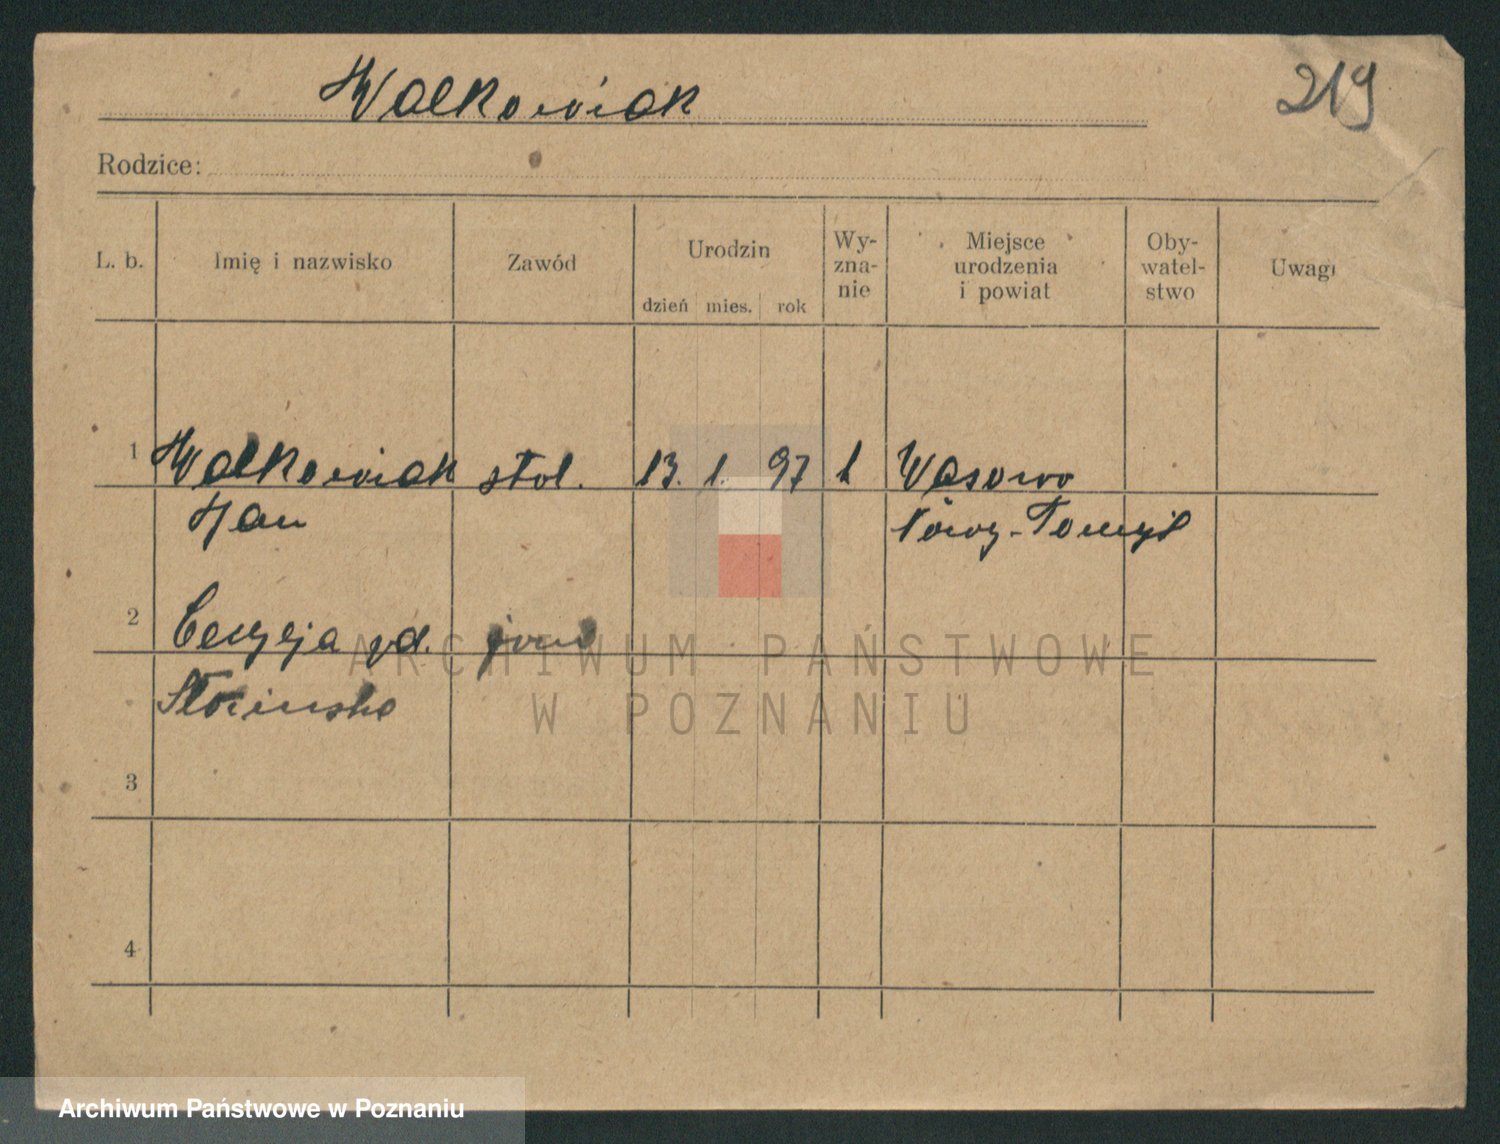 Walkowiak
219
Rodzice:
L. b. Imię i nazwisko Zawód Urodzin dzień mies. rok Wy-zna-nie Miejsce urodzenia i powiat Oby-watel-stwo Uwagi
1 Walkowiak stol. 13. 1. 97 k Wąsowo
Jan Nowy-Tomyśl
2 Cecylja zd. żona
3
4
ARCHIWUM PAŃSTWOWE
W POZNANIU
Archiwum Państwowe w Poznaniu